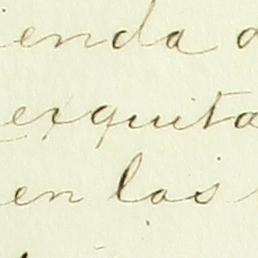 ienda a
exquita
en los